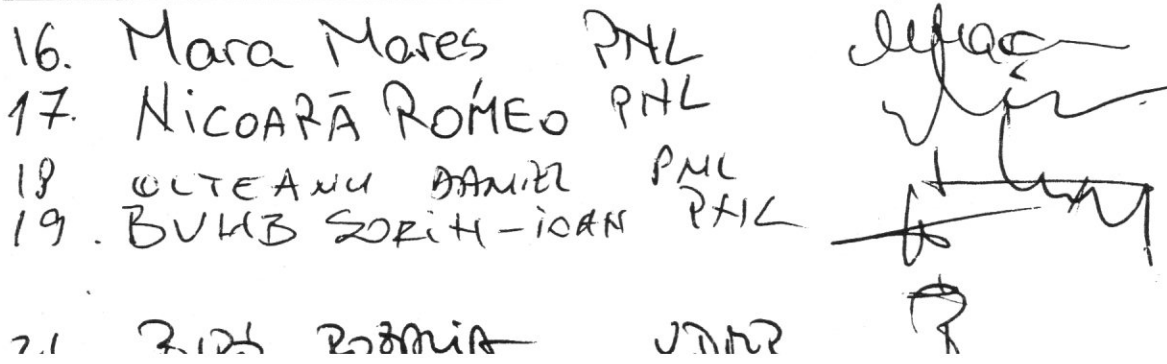 16. Mara Mares PNL
17. NICOARĂ ROMEO PNL
18 OLTEANU DANIEL PNL
19. BUMB SORIN-IOAN PNL
BIRÓ ROZALIA UDMR